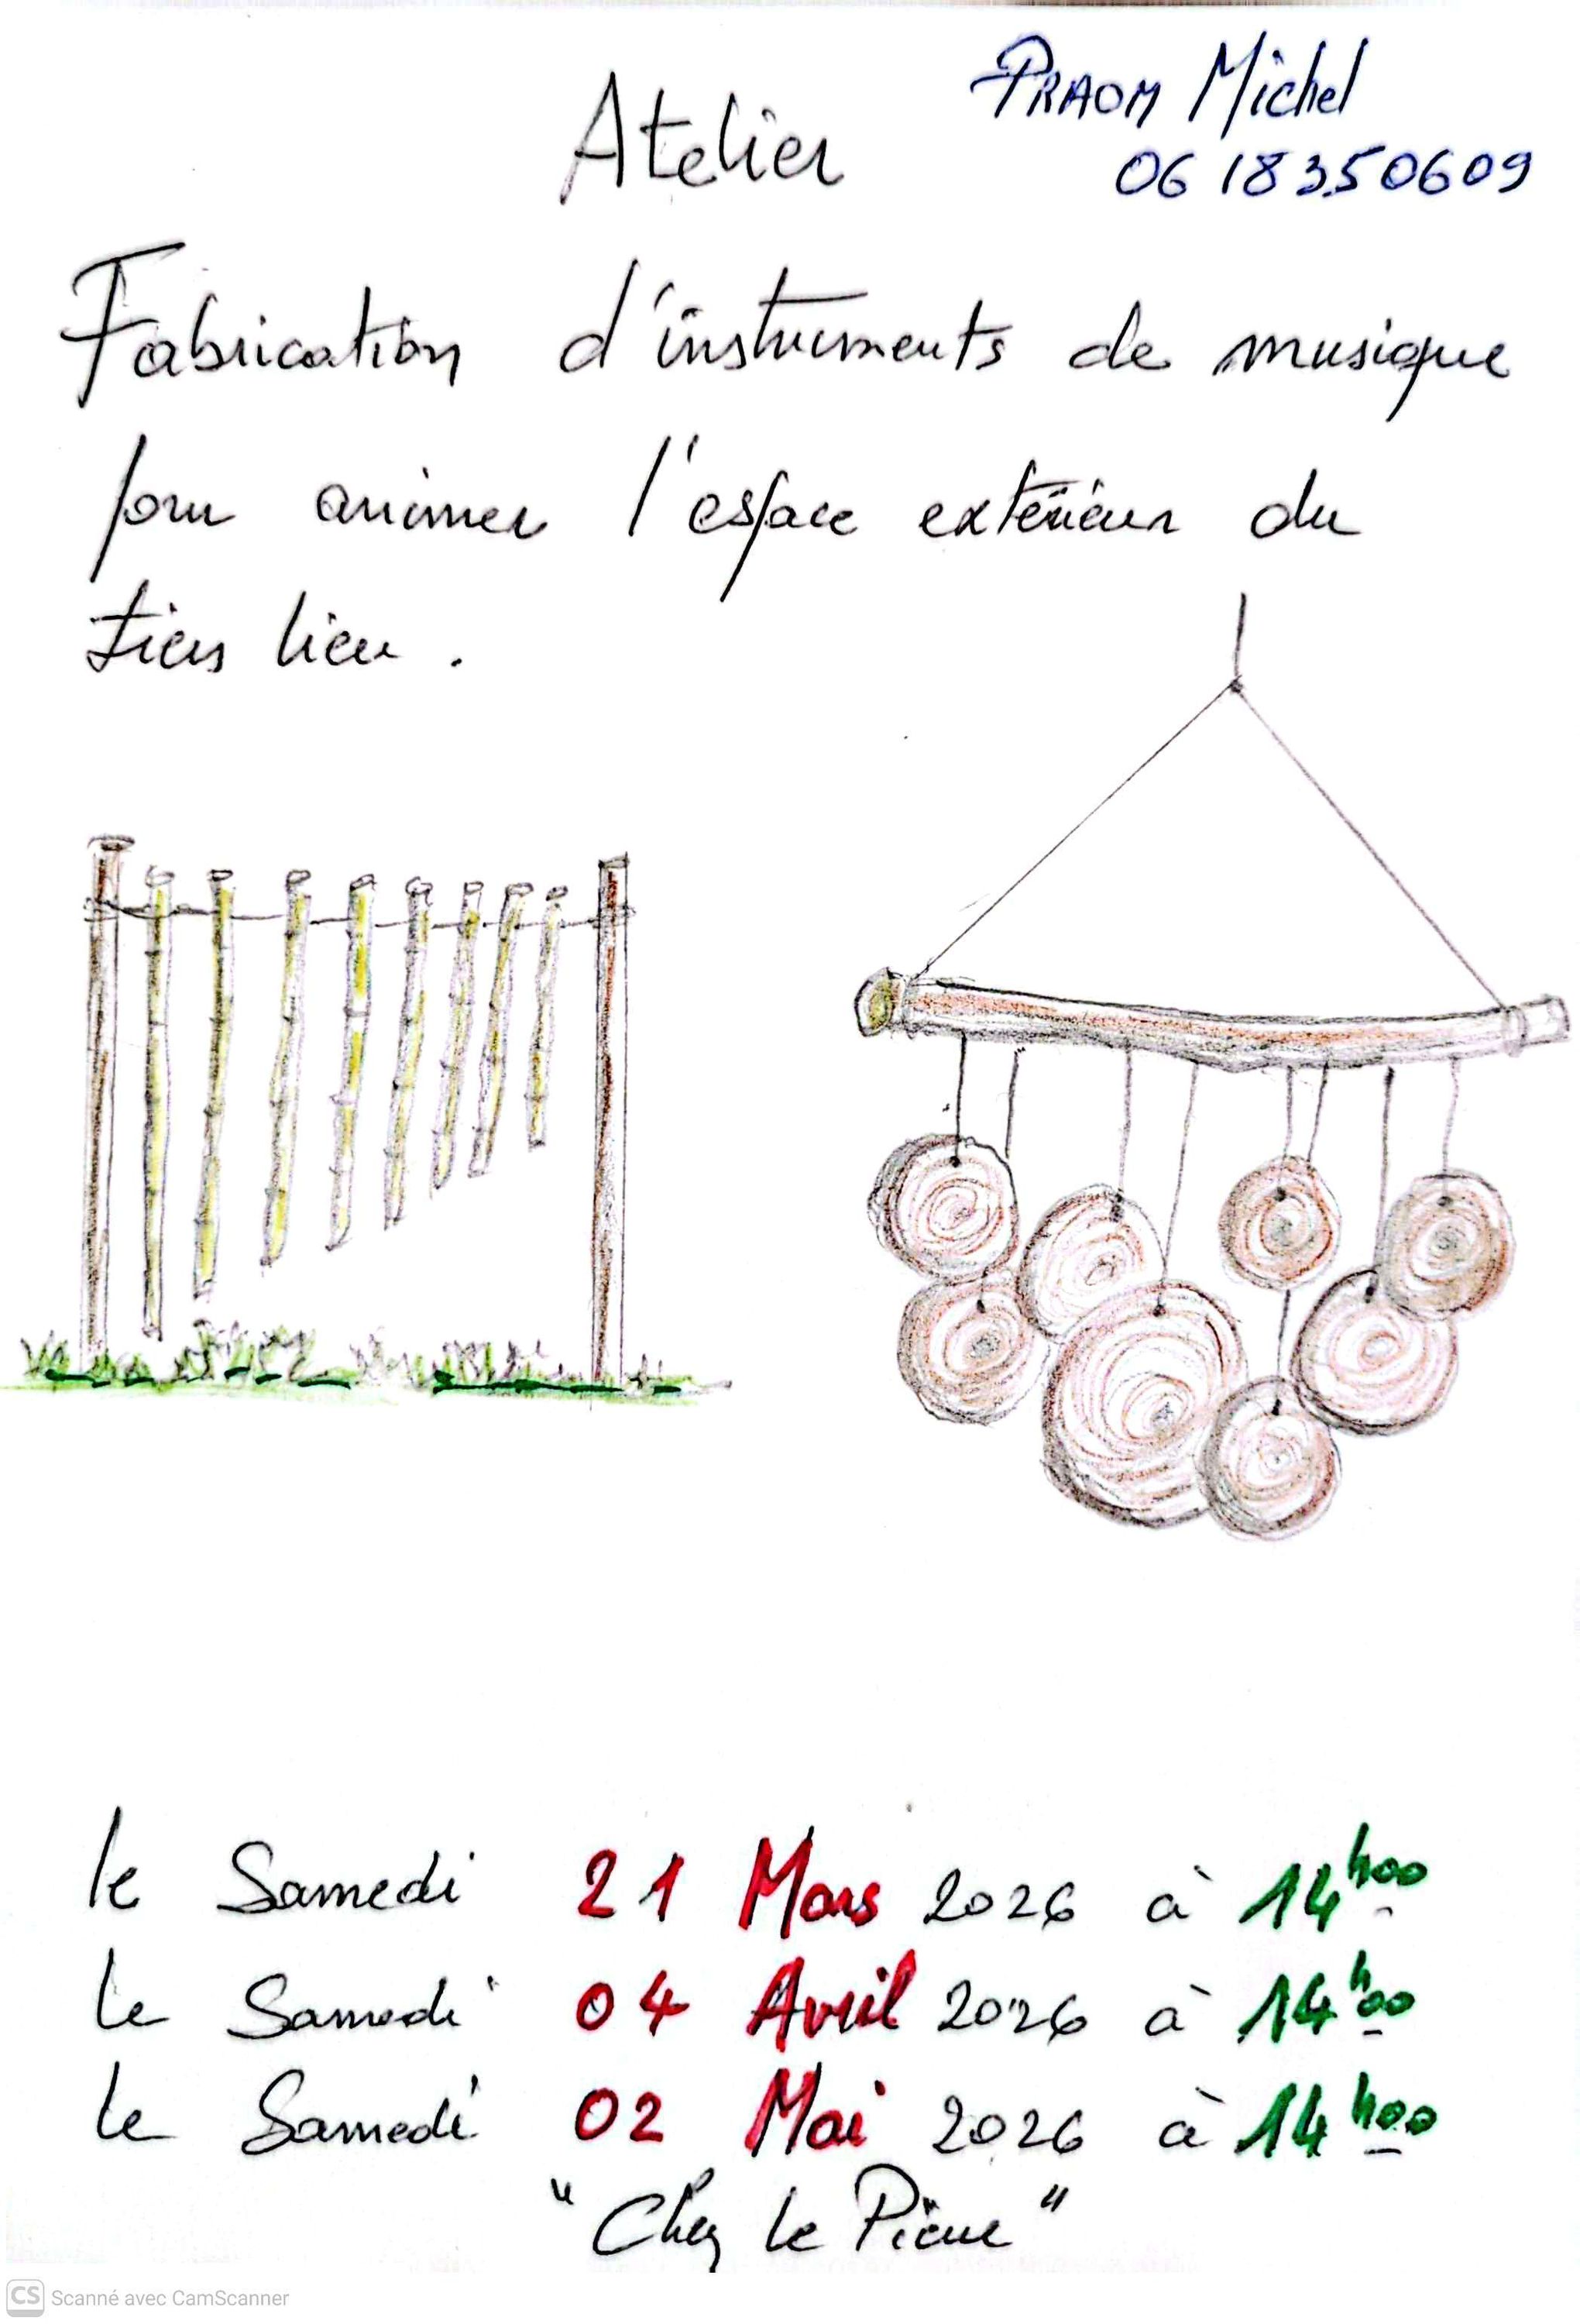 Atelier
PRAOM Michel
06 18350609
Fabrication d'instruments de musique
pour animer l'espace extérieur du
tiers lieu.
le Samedi 21 Mars 2026 à 14h00
le Samedi 04 Avril 2026 à 14h00
le Samedi 02 Mai 2026 à 14h00
"Chez le Pierre"
CS Scanné avec CamScanner